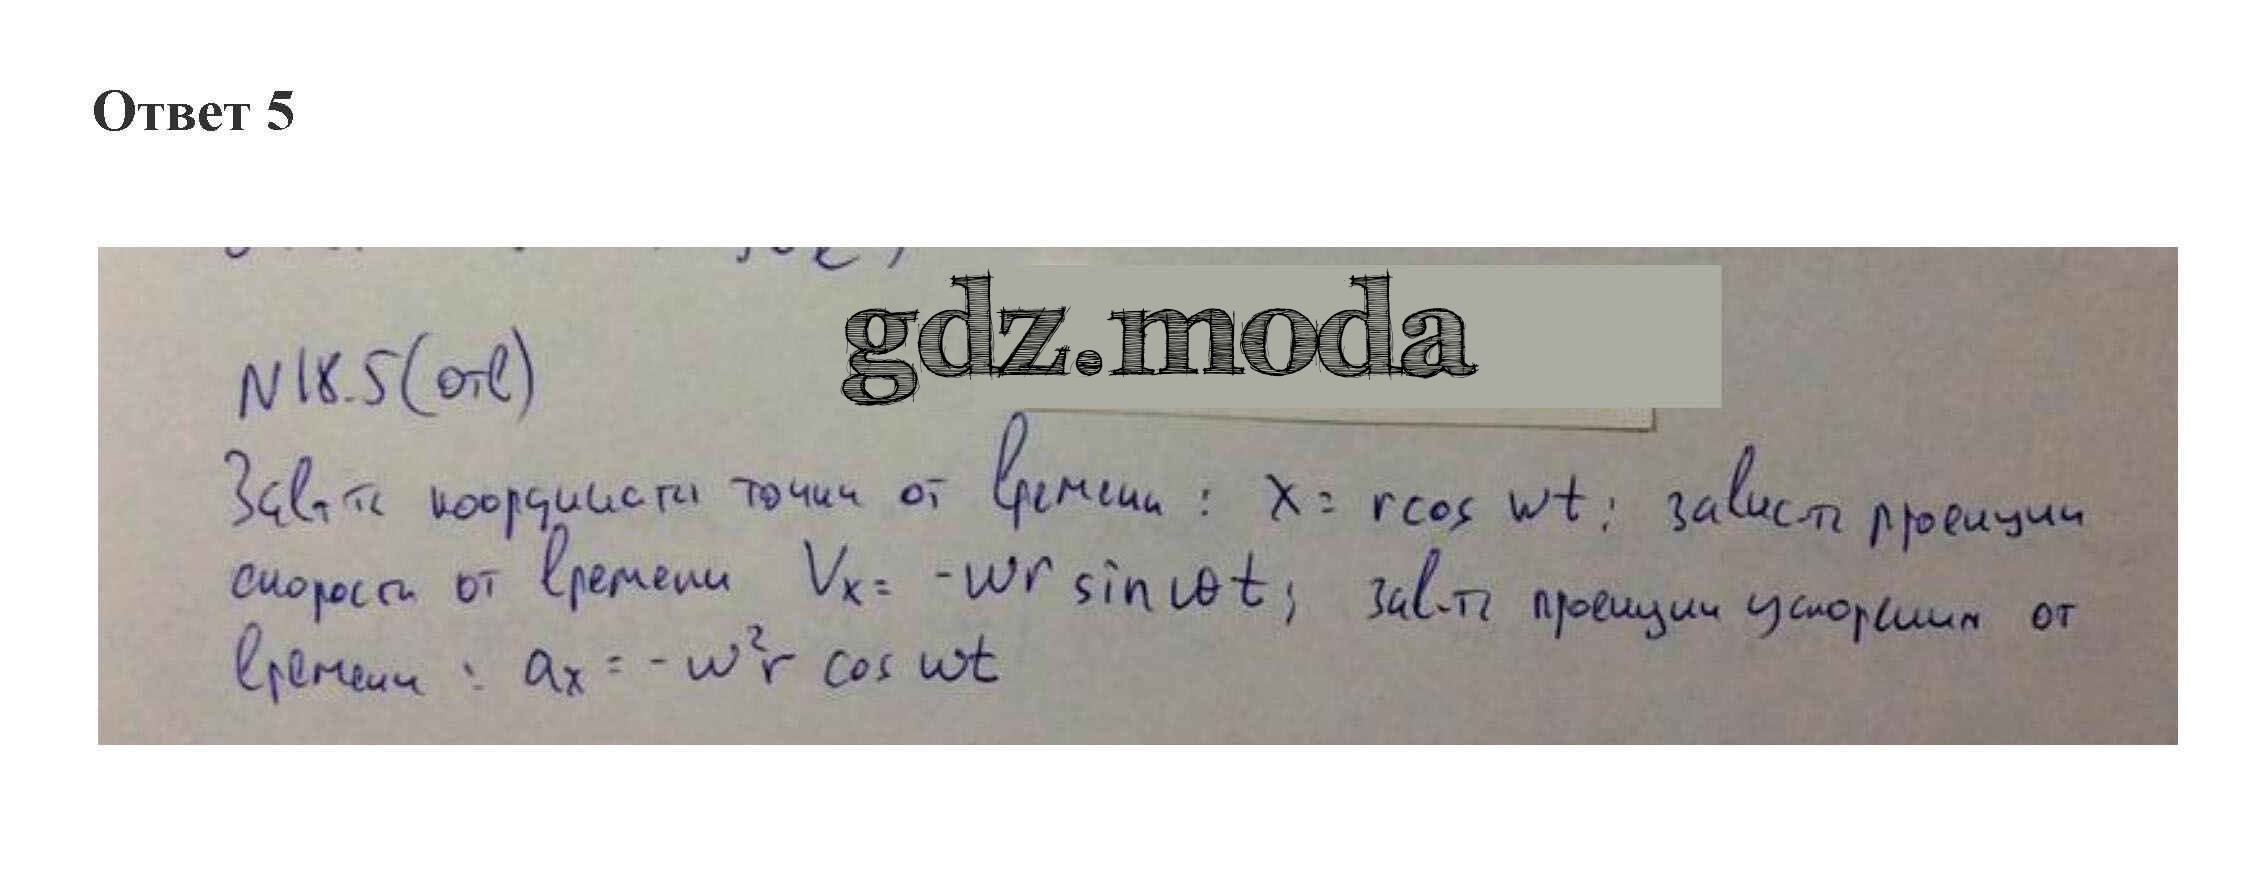 Ответ 5
gdz.moda
N18.5(отв)
Зав-ть координаты точки от времени : x = rcos wt; завис-ть проекции
скорости от времени Vx = -wr sin wt; зав-ть проекции ускорения от
времени : ax = -w²r cos wt